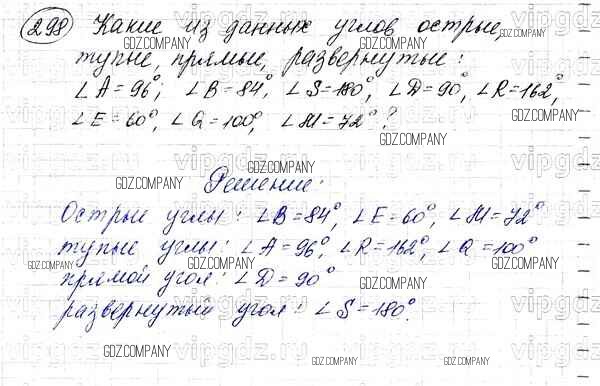 298 Какие из данных углов острые,
тупые, прямые, развернутые:
∠A = 96°; ∠B = 84°, ∠S = 180°, ∠D = 90°, ∠R = 162°,
∠E = 60°, ∠Q = 100°, ∠M = 72°?
Решение:
Острые углы: ∠B = 84°, ∠E = 60°, ∠M = 72°
тупые углы: ∠A = 96°, ∠R = 162°, ∠Q = 100°
прямой угол: ∠D = 90°
развернутый угол: ∠S = 180°.
GDZ.COMPANY
vipgdz.ru